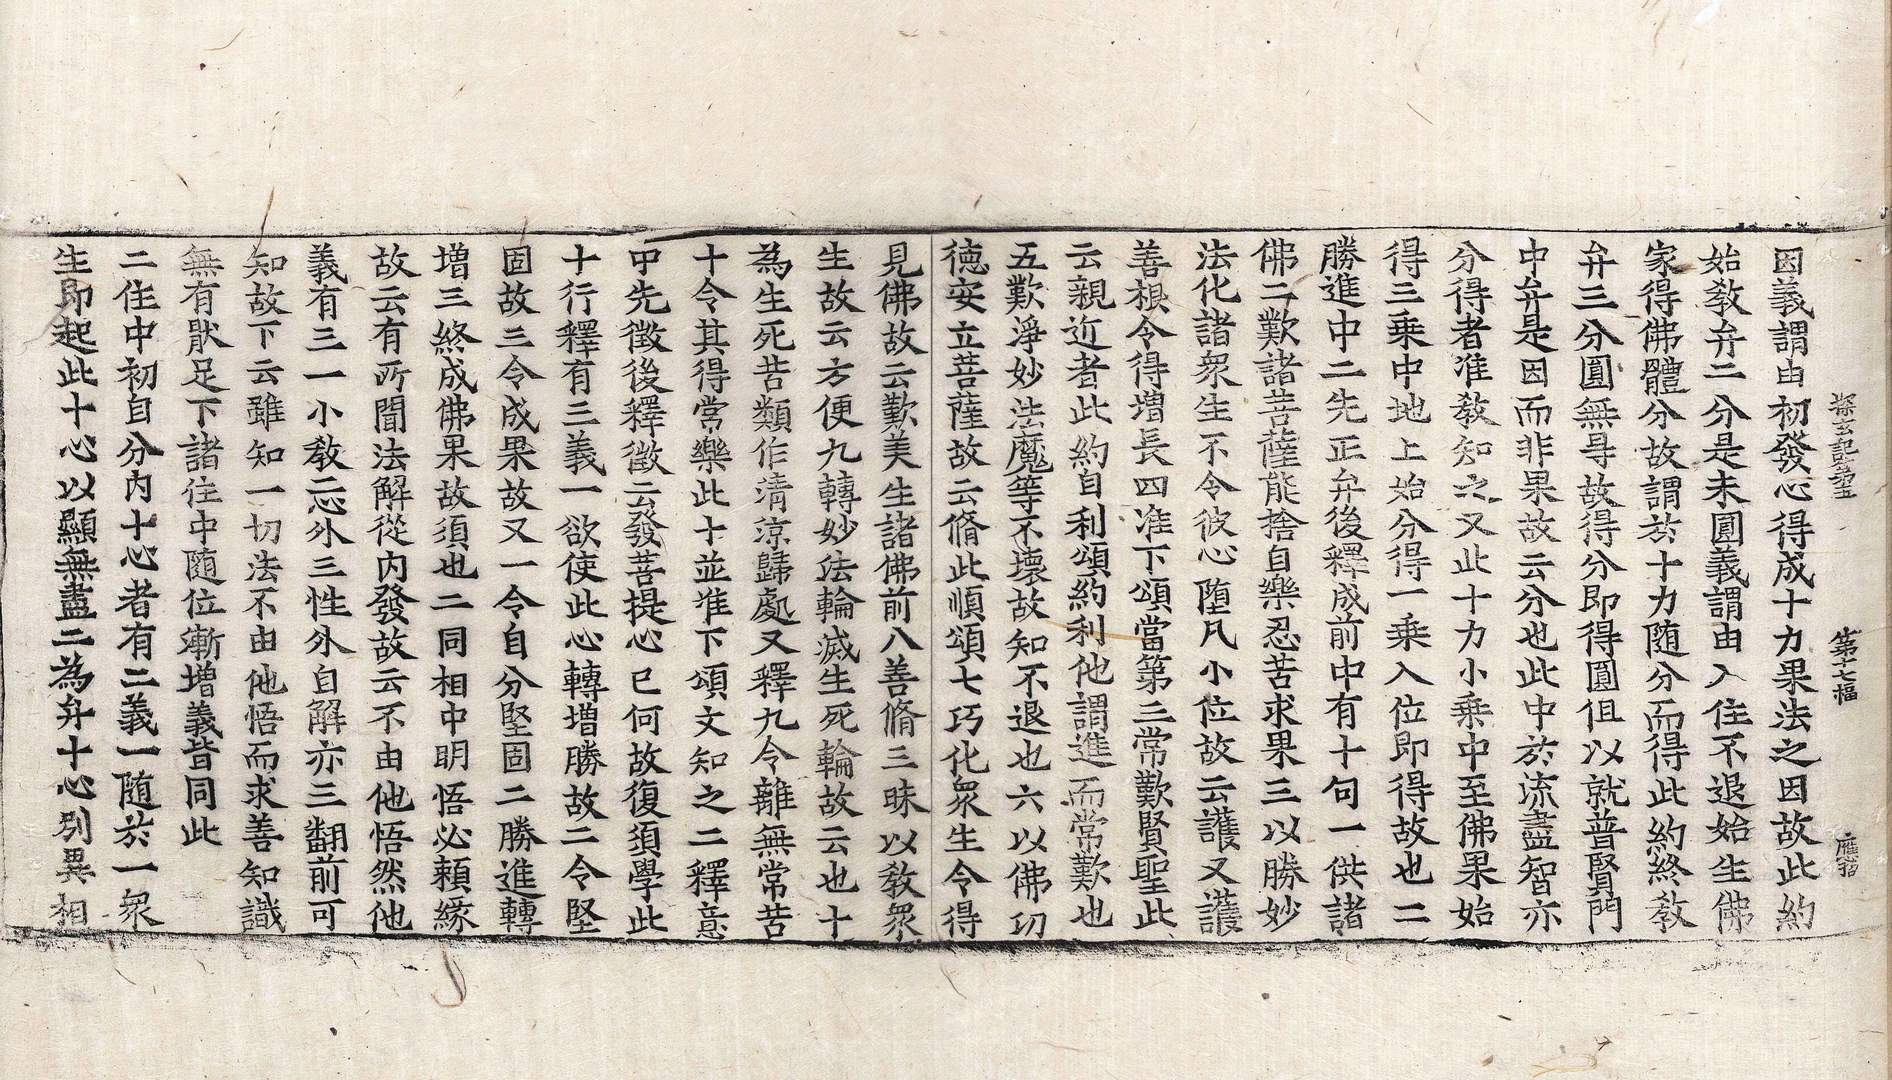 探玄記第五 第十七幅 應宿
因義謂由初發心得成十力果法之因故此約
始教弁二分是未圓義謂由入住不退始生佛
家得佛體分故謂於十力随分而得此約終教
弁三分圓無㝵故得分即得圓但以就普賢門
中弁是因而非果故云分也此中於流盡智亦
分得者准教知之又此十力小乗中至佛果始
得三乗中地上始分得一乗入位即得故也二
勝進中二先正弁後釋成前中有十句一供諸
佛二歎諸菩薩能捨自樂忍苦求果三以勝妙
法化諸衆生不令彼心堕凡小位故云護又護
善根令得増長四准下頌當第三常歎賢聖此
云親近者此約自利頌約利他謂進而常歎也
五歎淨妙法魔等不壞故知不退也六以佛功
徳安立菩薩故云脩此順頌七巧化衆生令得
見佛故云歎美生諸佛前八善脩三昧以教衆
生故云方便九轉妙法輪滅生死輪故云也十
為生死苦類作清涼歸處又釋九令離無常苦
十令其得常樂此十並准下頌文知之二釋意
中先徴後釋徴云發菩提心已何故復須學此
十行釋有三義一欲使此心轉増勝故二令堅
固故三令成果故又一令自分堅固二勝進轉
増三終成佛果故須也二同相中明悟必頼縁
故云有所聞法解從内發故云不由他悟然他
義有三一小教二心外三性外自解亦三翻前可
知故下云雖知一切法不由他悟而求善知識
無有猒足下諸住中随位漸増義皆同此
二住中初自分内十心者有二義一随於一衆
生即起此十心以顯無盡二為弁十心別異相